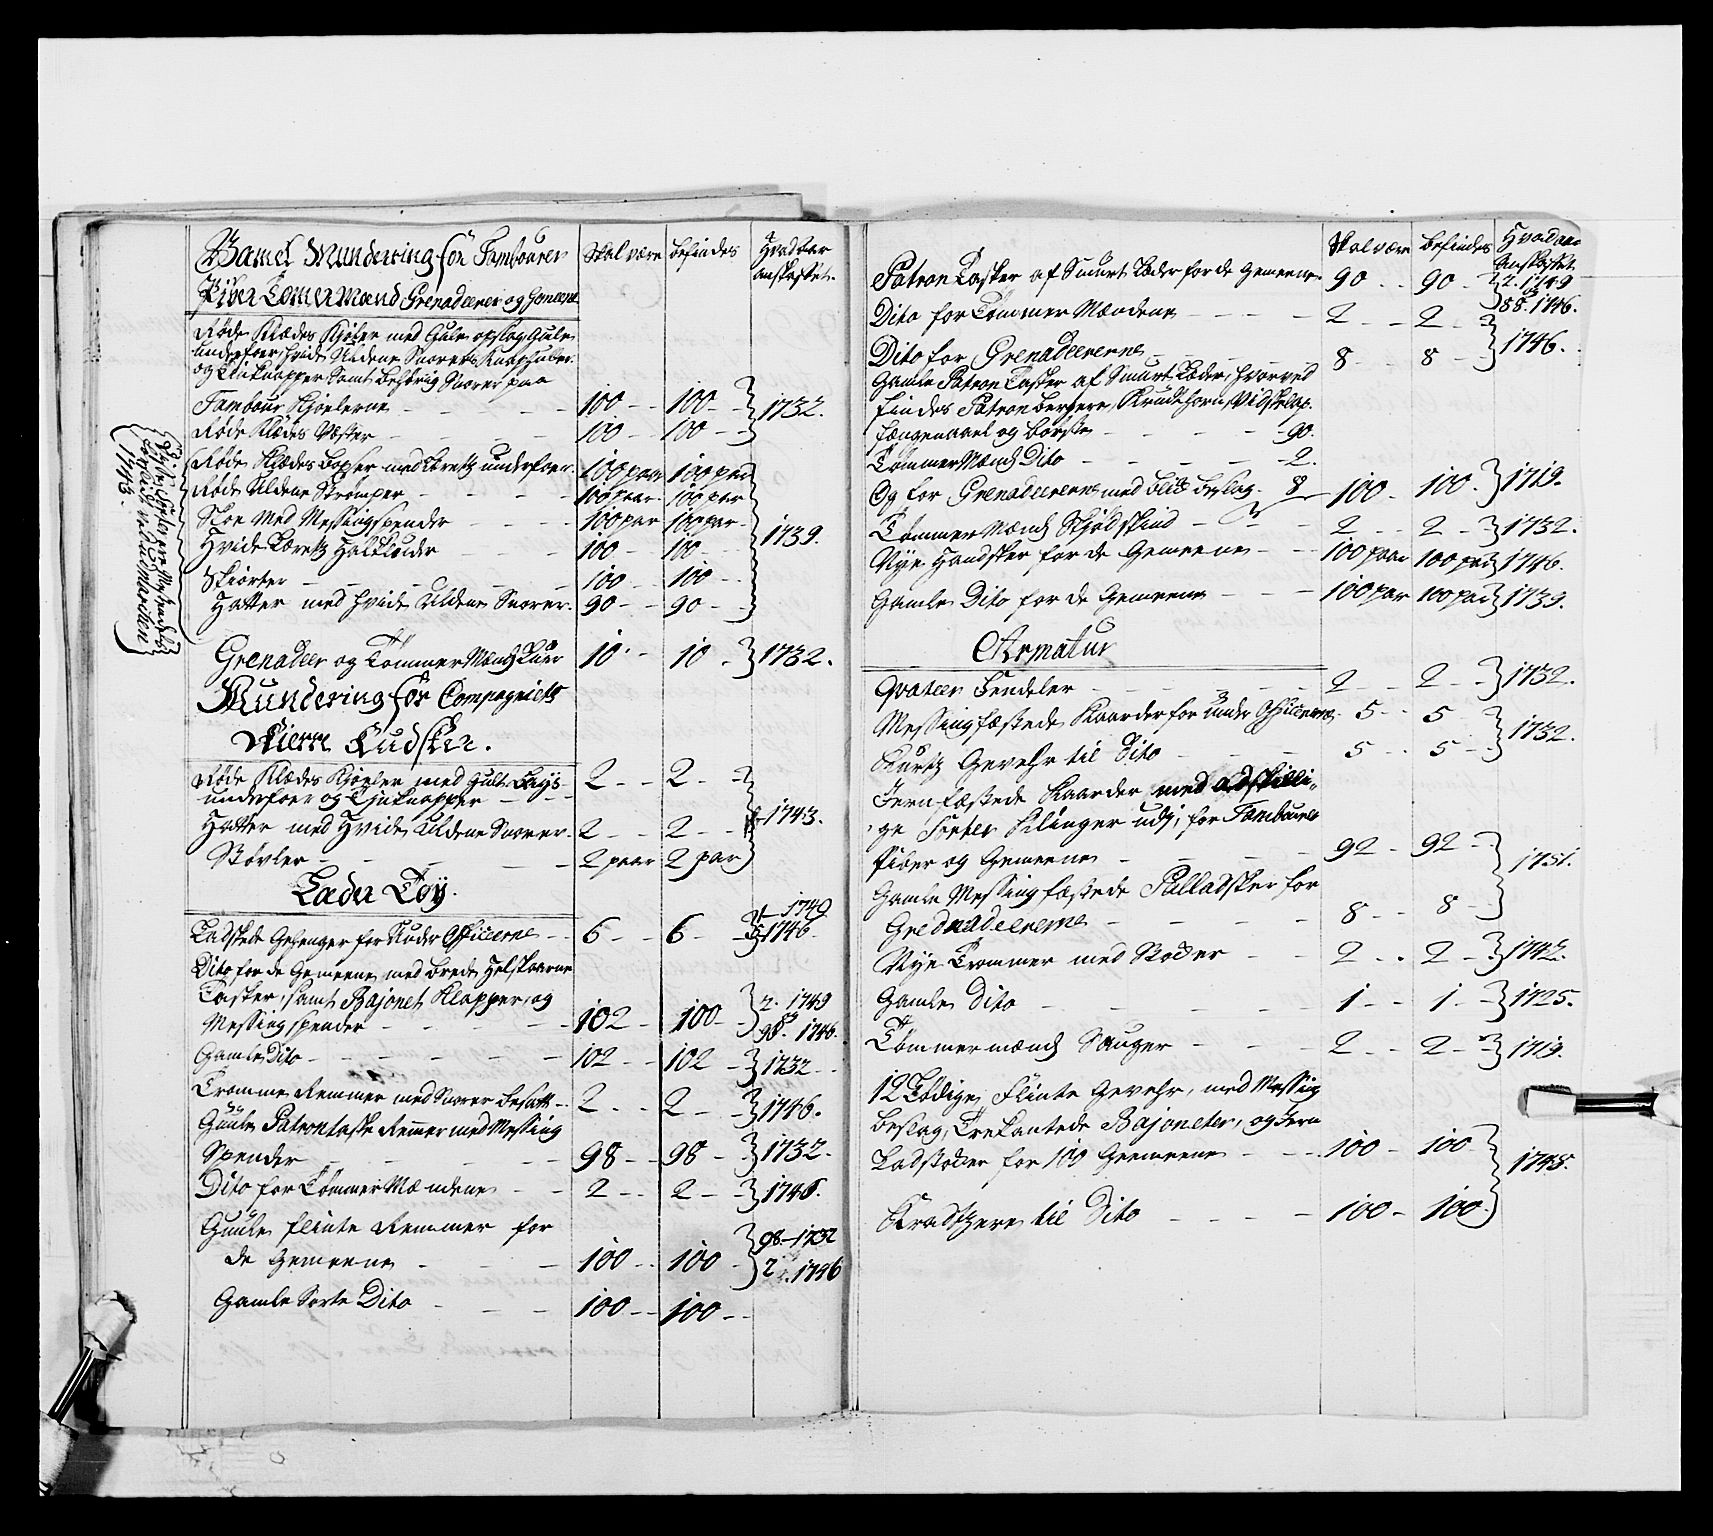 Gamel Mundering for Tambourer
Piber Tømermænd Grenadeerer og Gemeene
Skal være
befindes
Hvad aar anskaffet
Røde Klædes Kjoler med Gule opslag Gule
underfoer hvide Uldene Snorers Knaphuller
og Tinknapper samt behørig Snorer paa
Tambour Kjolerne - - 100 - - 100 - - } 1732.
Røde Klædes Vester - - 100 - - 100 - -
Røde Klædes boxser med Lerretz underfoer. 100 par 100 par
Røde Uldene Strømper - - 100 paar. 100 par
Skoe Med Messingspender - - 100 par 100 par - } 1739.
Hvide Lerretz Halsklude - - 100 - - 100 -
Skiorter - - 100 - - 100 - -
Hatter med hvide Uldene Snorer. 90 - - 90 - -
Grenadeer og Tømmer Mændz Luer 10 - - 10 - } 1732.
Mundering for Compagniets
Pierre Kudsker.
Røde Klædes Kjoler med Gult Bays
underfoer og Tinknapper - - 2 - - 2 - -
Hatter med Hvide Uldene Snorer - 2 - - 2 - - } 1743.
Støvler - - 2 paar 2 par
Læder Tøy.
Ladskede Gehenger for Under Officeerne - - 6 - - 6 - - 1 - 1749 5 - 1746.
Dito for de Gemeene med brede Helskaarne
Tasker, samt Bajonet Klapper, og
Messing spender - - 102 - - 100 - - } 2. 1749 og 98. 1746.
Gamle Dito - - 102 - - 102 - } 1732 - -
Tromme Remmer med Snorer besatt - 2 - - 2 - - } 1746.
Guule Patrontaske Remmer med Messing
Spender - - 98 - - 98 - } 1732.
Dito for Tømmer Mændene - - 2 - - 2 - - } 1746.
Guule flinte Remmer for
de Gemeene - - 100 - - 100 - } 98 - 1732 2 . 1746
Gamle Sorte Dito - - 100 - - 100 - -
1743.
Skal være
befindes
Hvad aar Anskaffet
Patron Tasker af Smurt Læder for de Gemeene. 90 - - 90 - } 2. 1749 og 88. 1746.
Dito for Tømmer Mændene - - 2 - - 2 - -
Dito for Grenadeererne - - 8 - - 8 - } 1746.
Gamle Patron Tasker af Smurt Læder, hvorved
findes Patron bergere, Krudthorn, Vidskelap.
fængenaal og børste - - 90.
Tømmer Mænds Dito - - 2.
Og for Grenadeererne med blik beslag. 8 100 - 100. } 1719.
Tømmer Mænds Skjødskind - - 2 - - 2 - } 1732.
Nye Handsker for de Gemeene - - 100 paar 100 par } 1746.
Gamle Dito for de Gemeene - - 100 par 100 par } 1739.
Armatur
Qvateer Fendeler - - 2 - - 2 - - } 1732.
Messingfæstede Kaarder for under Officeerne. 5 - - 5 - } 1732.
Kurtz Gevehr til Dito - - 5 - - 5 - -
Jernfæstede Kaarder med adskilli-
ge Sorter Klinger udj, for Tambourer
Piber og Gemeene - - 92 - 92 - - } 1751.
Gamle Messingfæstede Palladsker for
Grednadeererne - - 8 - - 8 - -
Nye Trommer med Stokker - - 2 - - 2 - } 1742.
Gamle Dito - - 1 - - 1 - - } 1725.
Tømmermænds Sauger - - 2 - - 2 - } 1719.
12 Lødige, Flinte Gevehr, med Messing
beslag, Trekantede Bajoneter, og Jern
Ladstoker for 100 Gemeene - - 100 - 100 - } 1748.
Kradsere til Dito - - 100 - 100.